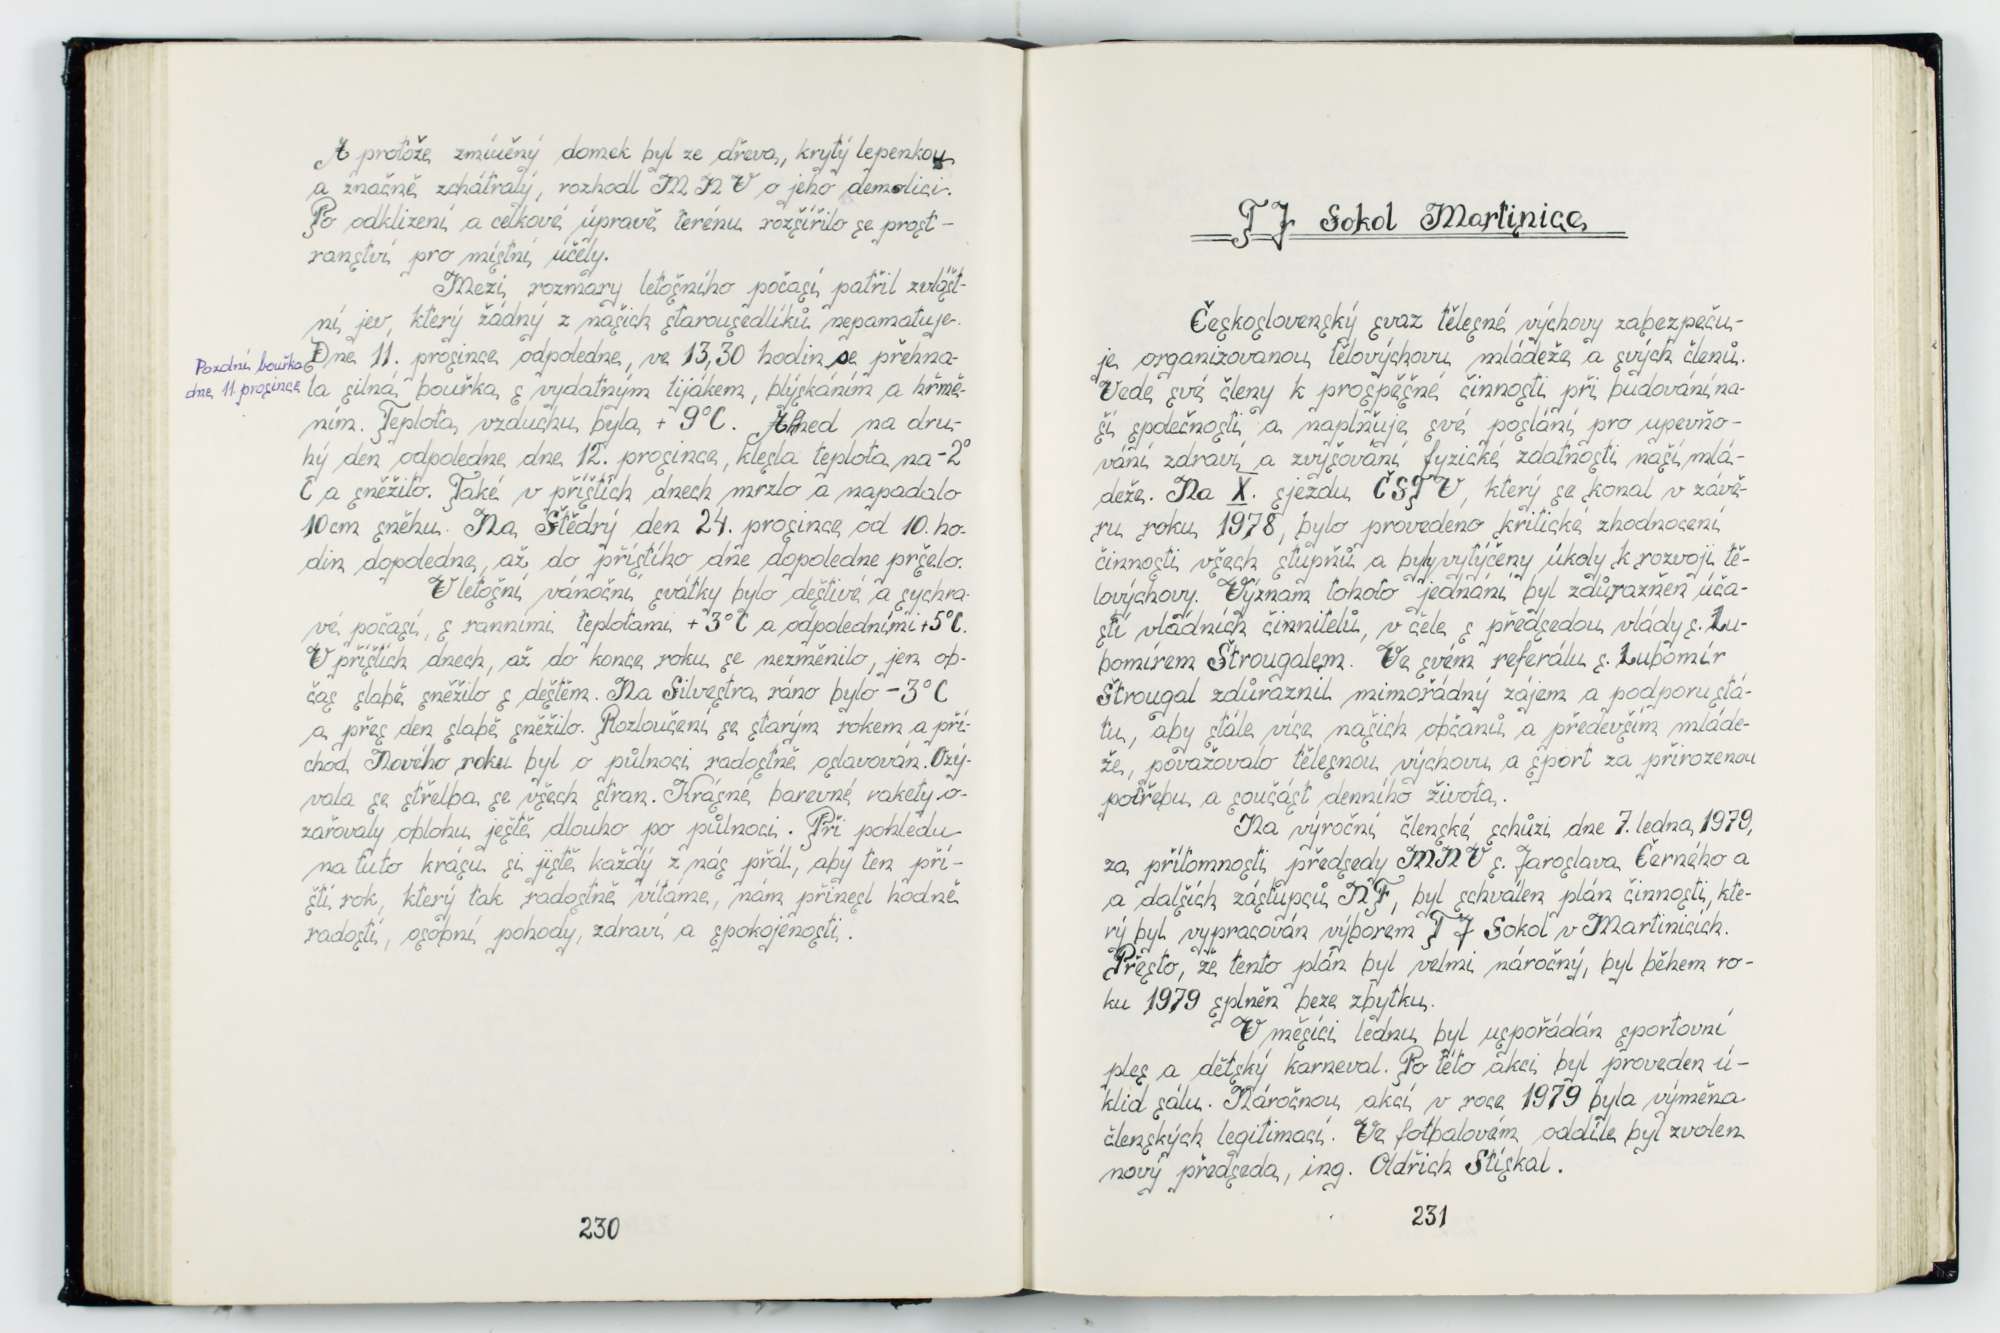 A protože zmíněný domek byl ze dřeva, krytý lepenkou
a značně zchátralý, rozhodl MNV o jeho demolici.
Po odklizení a celkové úpravě terénu rozšířilo se prost-
ranství pro místní účely.
Mezi rozmary letošního počasí patřil zvlášt-
ní jev, který žádný z našich starousedlíků nepamatuje.
Dne 11. prosince odpoledne, ve 13,30 hodin se přehna-
la silná bouřka s vydatným lijákem, blýskáním a hřmě-
ním. Teplota vzduchu byla + 9°C. Ihned na dru-
hý den odpoledne dne 12. prosince, klesla teplota na -2°
C a sněžilo. Také v příštích dnech mrzlo a napadalo
10 cm sněhu. Na Štědrý den 24. prosince od 10. ho-
din dopoledne, až do příštího dne dopoledne pršelo.
V letošní vánoční svátky bylo deštivé a sychra-
vé počasí, s ranními teplotami +3°C a odpoledními +5°C.
V příštích dnech, až do konce roku se nezměnilo, jen ob-
čas slabě sněžilo s deštěm. Na Silvestra ráno bylo -3°C
a přes den slabě sněžilo. Rozloučení se starým rokem a pří-
chod Nového roku byl o půlnoci radostně oslavován. Ozý-
vala se střelba se všech stran. Krásné barevné rakety o-
zařovaly oblohu ještě dlouho po půlnoci. Při pohledu
na tuto krásu si jistě každý z nás přál, aby ten pří-
ští rok, který tak radostně vítáme, nám přinesl hodně
radosti, osobní pohody, zdraví a spokojenosti.
Pozdní bouřka
dne 11. prosince
230
TJ Sokol Martinice
Československý svaz tělesné výchovy zabezpeču-
je organizovanou tělovýchovu mládeže a svých členů.
Vede své členy k prospěšné činnosti při budování na-
ší společnosti a naplňuje své poslání pro upevňo-
vání zdraví a zvyšování fyzické zdatnosti naší mlá-
deže. Na X. sjezdu ČSTV, který se konal v závě-
ru roku 1978, bylo provedeno kritické zhodnocení
činnosti všech stupňů a byly vytýčeny úkoly k rozvoji tě-
lovýchovy. Význam tohoto jednání byl zdůrazněn úča-
stí vládních činnitelů, v čele s předsedou vlády s. Lu-
bomírem Štrougalem. Ve svém referálu s. Lubomír
Štrougal zdůraznil mimořádný zájem a podporu stá-
tu, aby stále více našich občanů a především mláde-
že, považovalo tělesnou výchovu a sport za přirozenou
potřebu a součást denního života.
Na výroční členské schůzi dne 7. ledna 1979,
za přítomnosti předsedy MNV s. Jaroslava Černého a
a dalších zástupců NF, byl schválen plán činnosti, kte-
rý byl vypracován výborem TJ Sokol v Martinicích.
Přesto, že tento plán byl velmi náročný, byl během ro-
ku 1979 splněn beze zbytku.
V měsíci lednu byl uspořádán sportovní
ples a dětský karneval. Po této akci byl proveden ú-
klid sálu. Náročnou akcí v roce 1979 byla výměna
členských legitimací. Ve fotbalovém oddíle byl zvolen
nový předseda, ing. Oldřich Stískal.
231